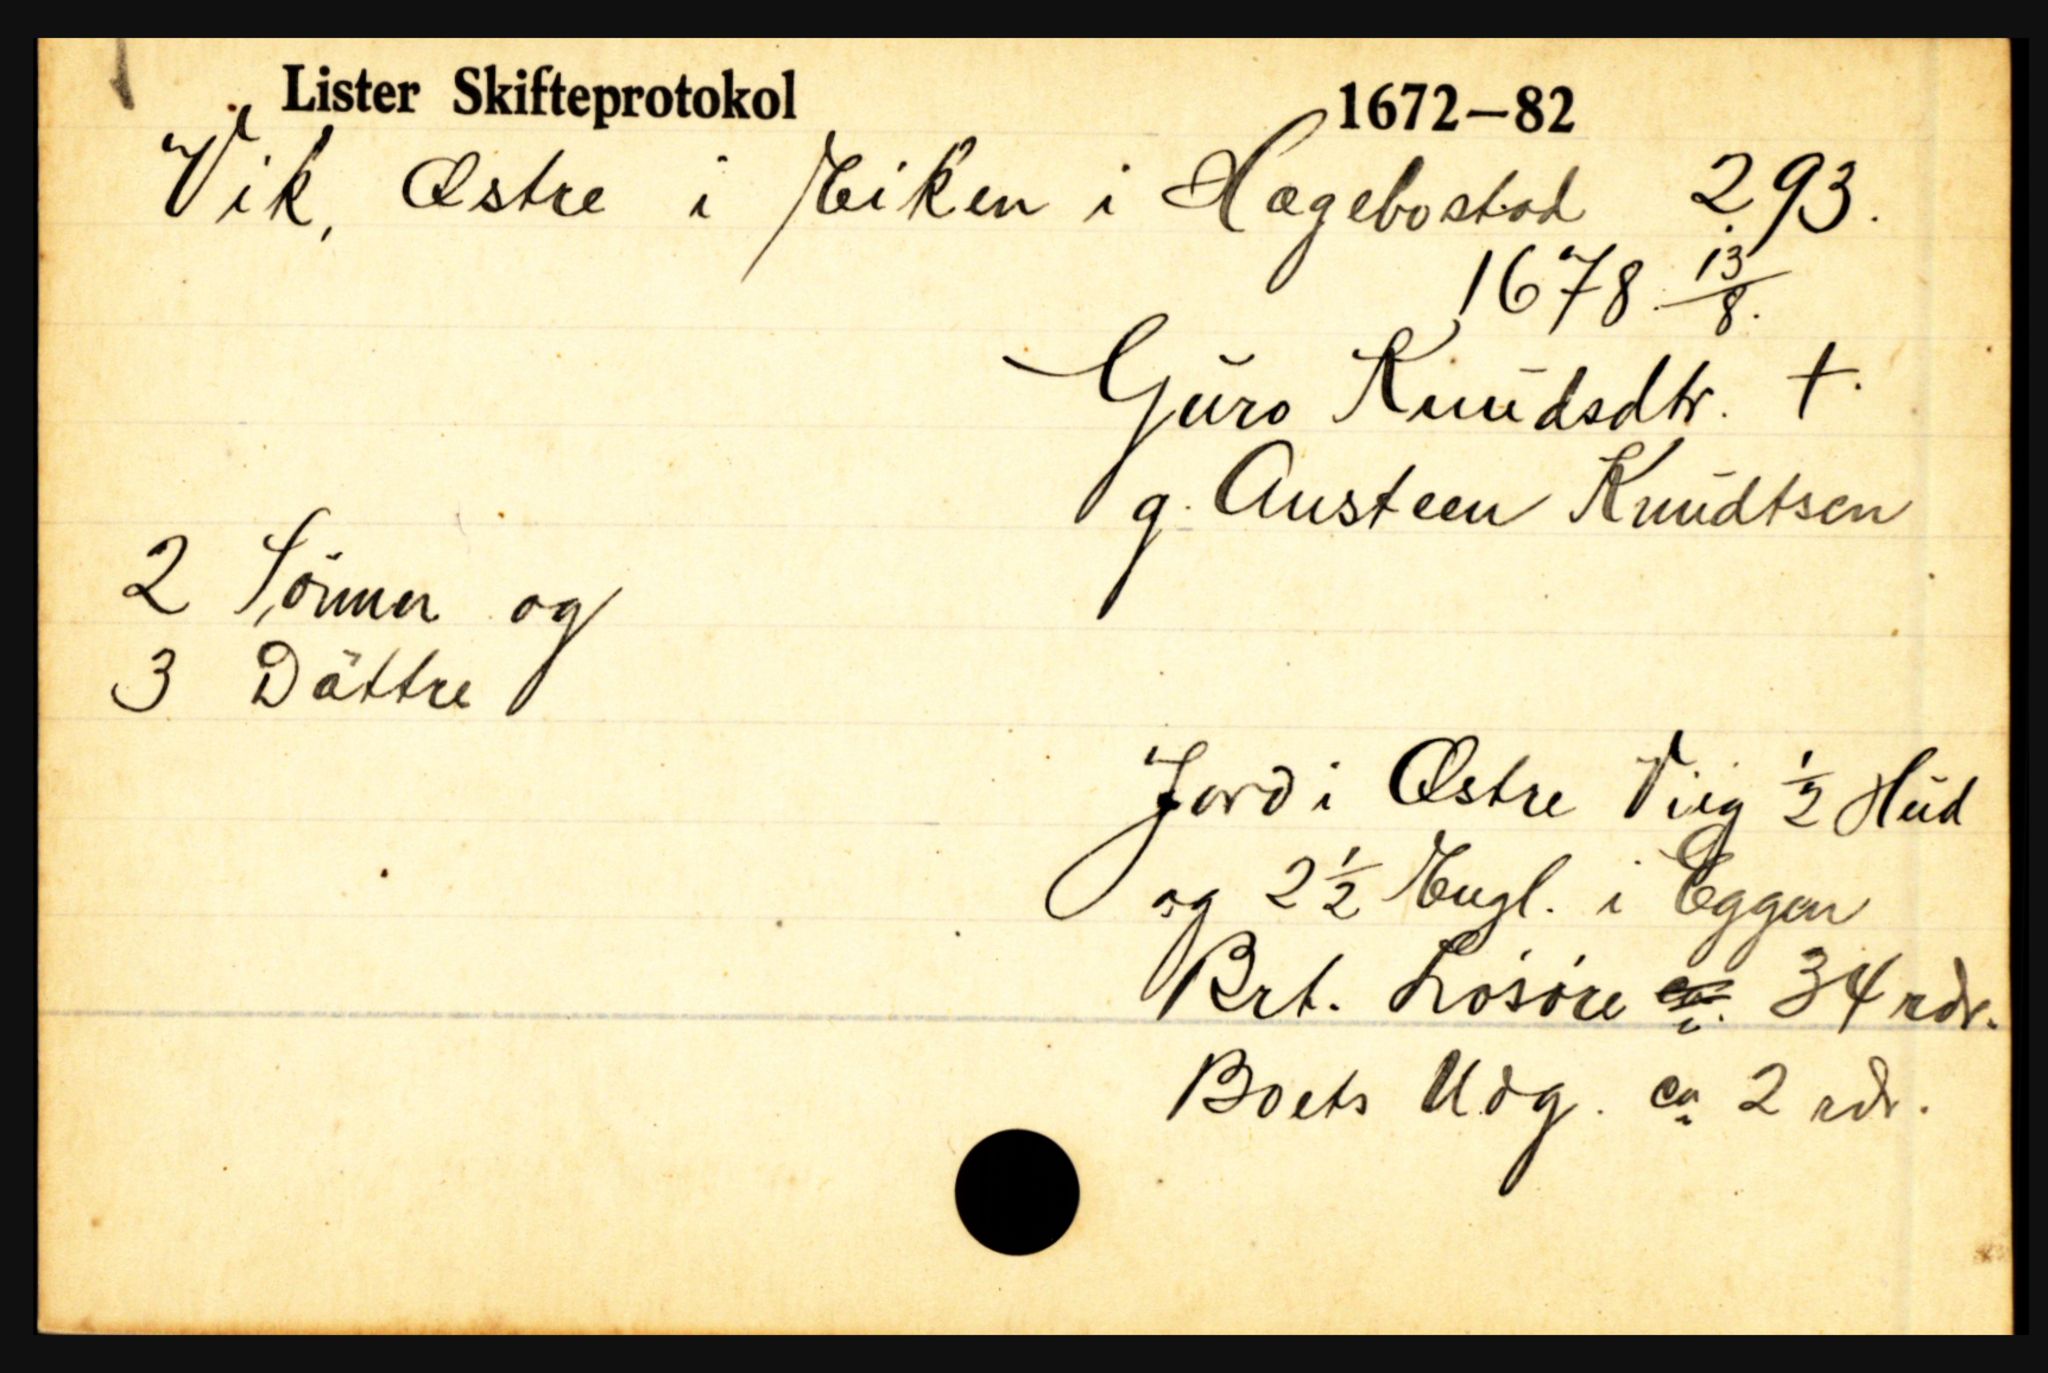 Lister Skifteprotokol 1672–82
Vik, Østre i Eiken i Hægebostad 293.
1678 13/8.
Guro Knudsdtr. †.
g. Austeen Knudtsen
2 Sönner og
3 Döttre
Jord i Østre Viig 1/2 Hud
og 2 1/2 Engl. i Eggen
Brt. Løsøre ca. 34 rdr.
Boets Udg. ca 2 rdr.